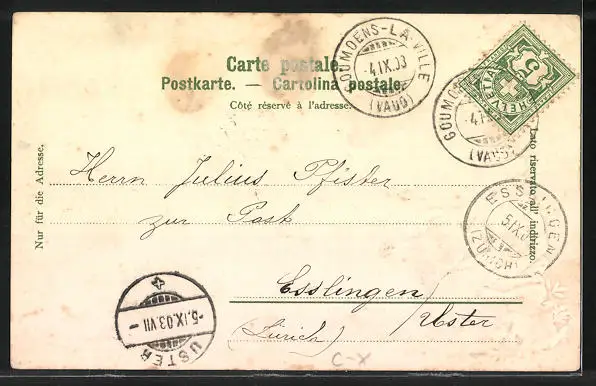 Carte postale.
Postkarte. — Cartolina postale.
Côté réservé à l'adresse.
Nur für die Adresse.
Lato riservato all' indirizzo.
GOUMOENS-LA-VILLE
-4.IX.03
(VAUD)
HELVETIA
5
GOUMOENS
4.IX
(VAUD)
ESSLINGEN
5.IX.0
(ZÜRICH)
Herrn Julius Pfister
zur Post
Esslingen
/Uster
(Zürich)
-5.IX.03.VII-
USTER
C-X